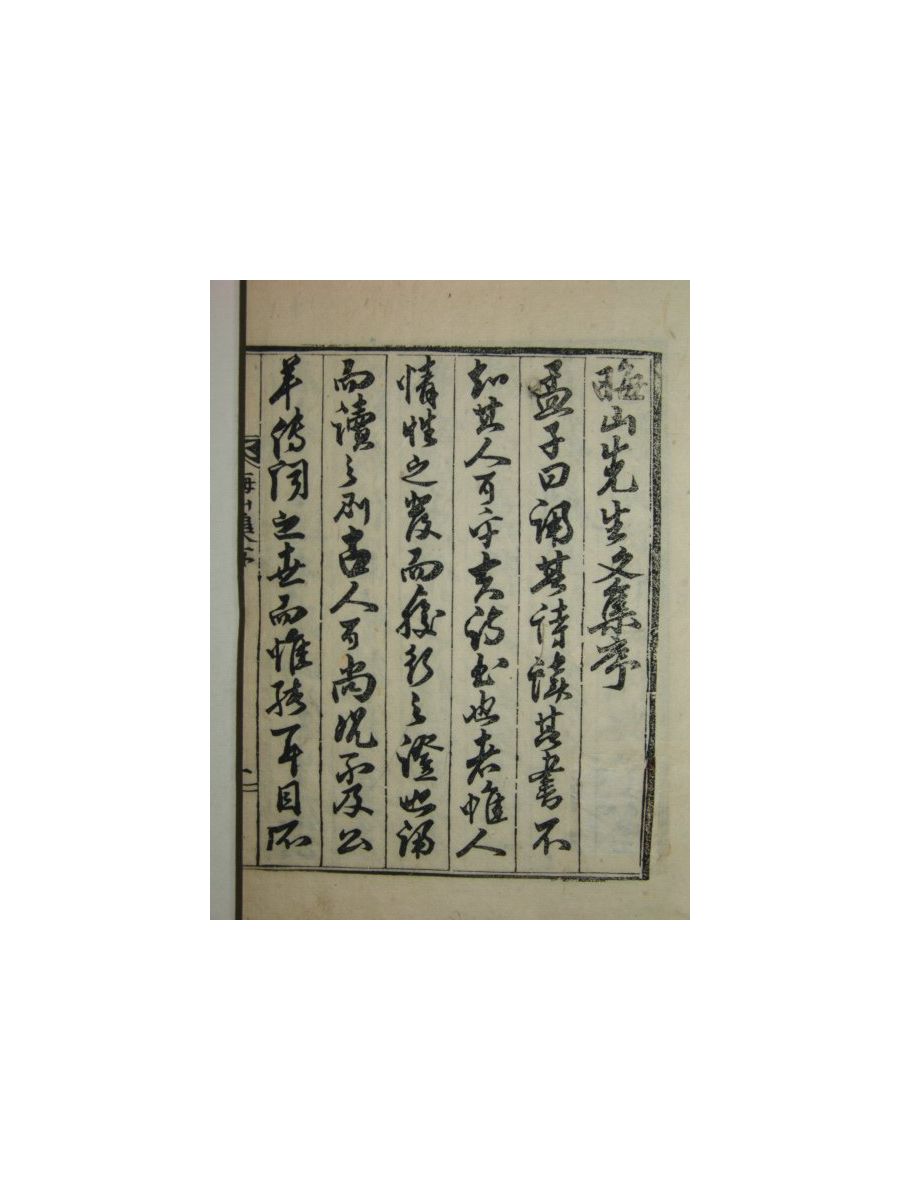 晦山先生文集序
孟子曰誦其詩讀其書不
知其人可乎夫詩書也者惟人
情性之發而之證也誦
而讀之則古人可尚況不及公
羊傳聞之世而惟耳目不
山集序
一